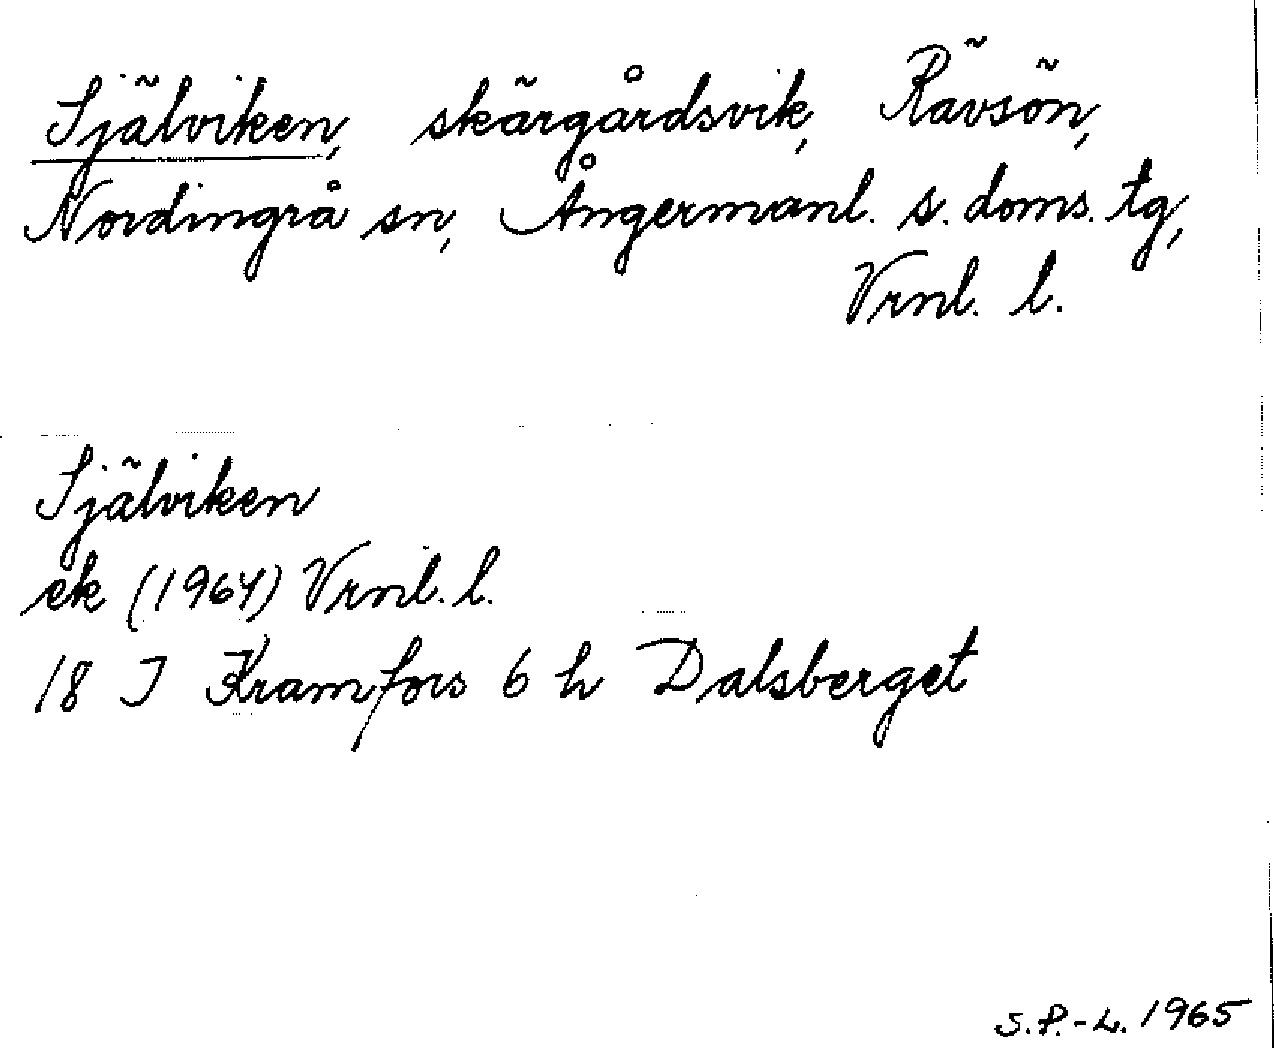 Själviken, skärgårdsvik, Rävsön,
Nordingrå sn, Ångermanl. s. doms. tg,
Vrnl. l.
Själviken
ek (1964) Vrnl. l.
18 I Kramfors 6 h Dalsberget
S.P.-L. 1965